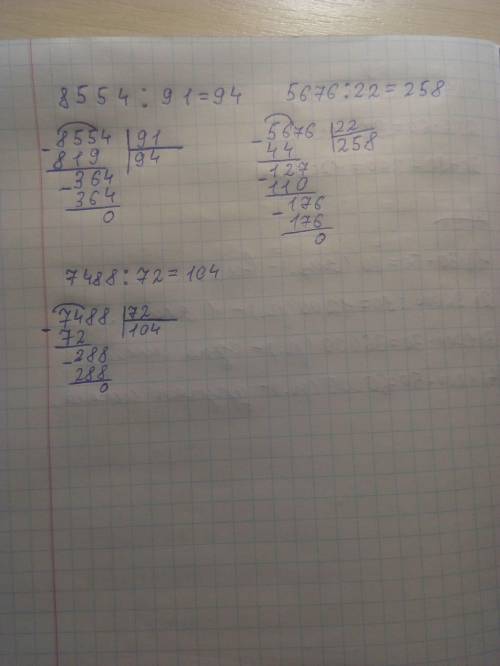 8554 : 91 = 94
- 8554 | 91
819 | 94
- 364
364
0
5676 : 22 = 258
- 5676 | 22
44 | 258
- 127
- 110
- 176
176
0
7488 : 72 = 104
- 7488 | 72
72 | 104
- 288
288
0